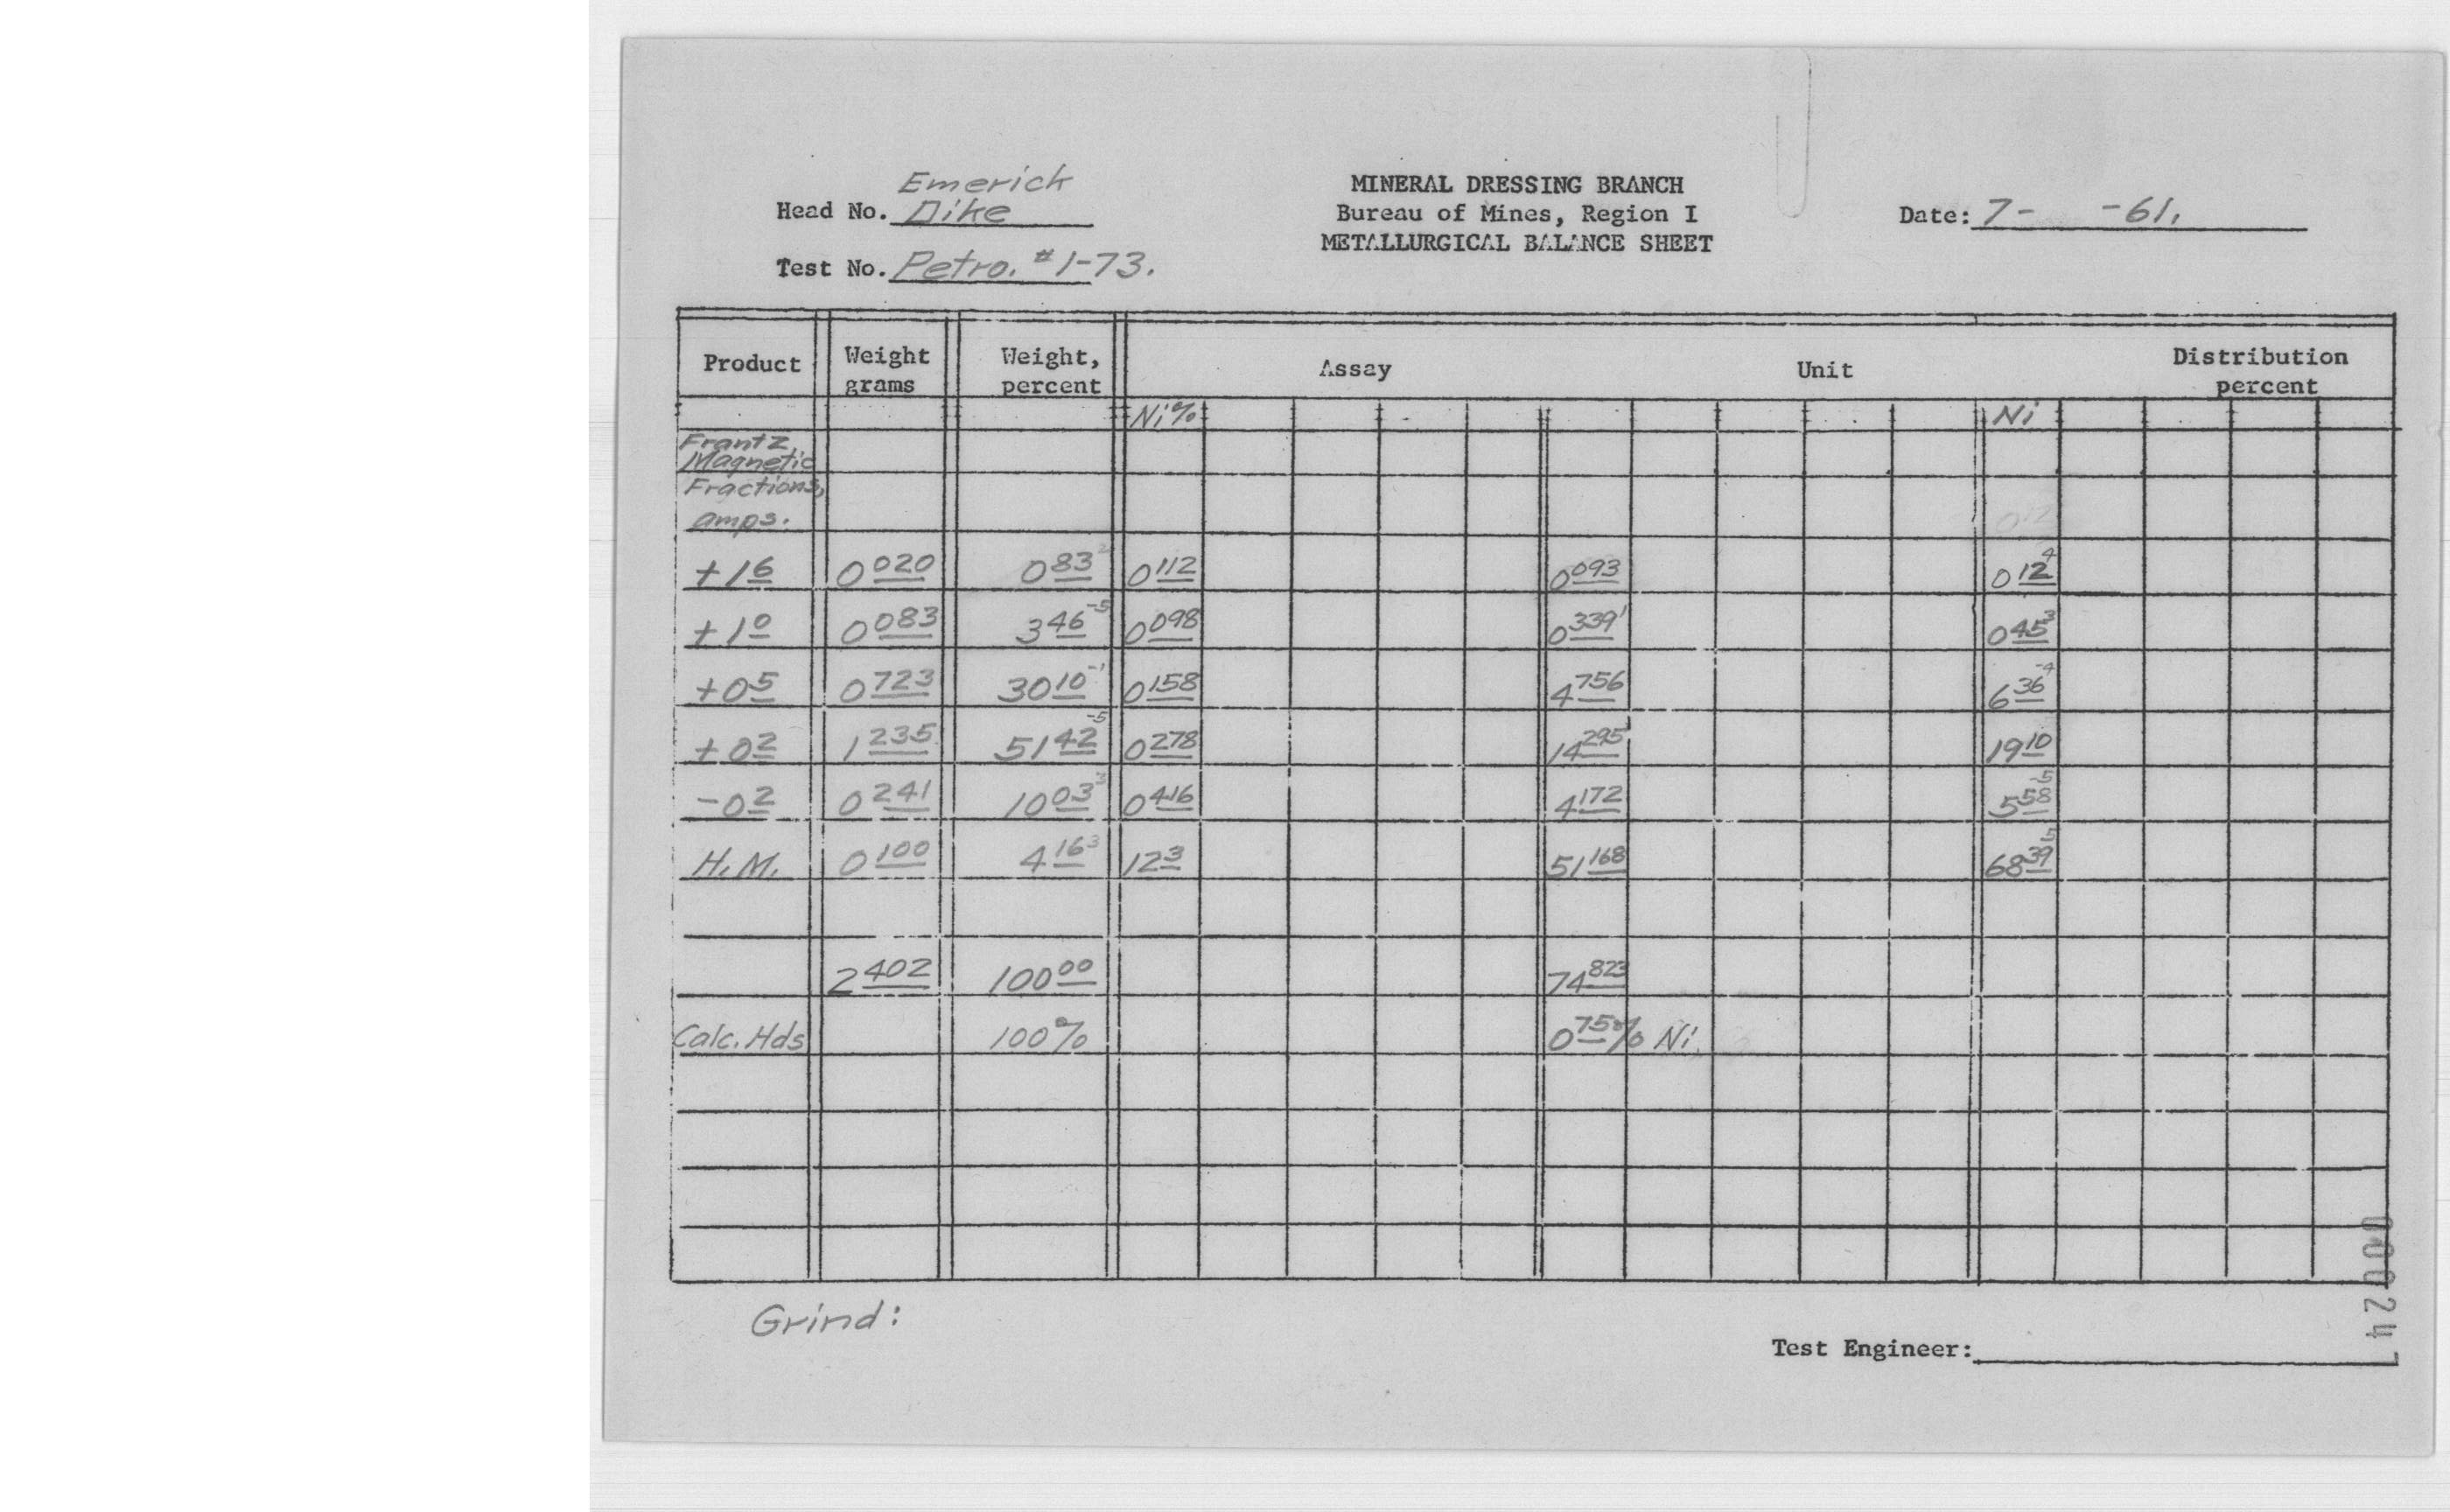 Emerick
Head No. Dike
MINERAL DRESSING BRANCH
Bureau of Mines, Region I
METALLURGICAL BALANCE SHEET
Date: 7- -61.
Test No. Petro. #1-73.
Product Weight grams Weight, percent Assay Unit Distribution percent
Ni% Ni
Frantz
Magnetic
Fractions,
amps.
+1 6 0 020 0 83 2 0 112 0 093 0 12 4
+1 0 0 083 3 46 -5 0 098 0 339 1 0 45 3
+0 5 0 723 30 10 -1 0 158 4 756 6 36 -4
+0 2 1 235 51 42 -5 0 278 14 295 19 10
-0 2 0 241 10 03 3 0 416 4 172 5 58 -5
H.M. 0 100 4 16 3 12 3 51 168 68 39 5
2 402 100 00 74 823
Calc. Hds 100% 0 75% Ni
Grind:
Test Engineer:
00247